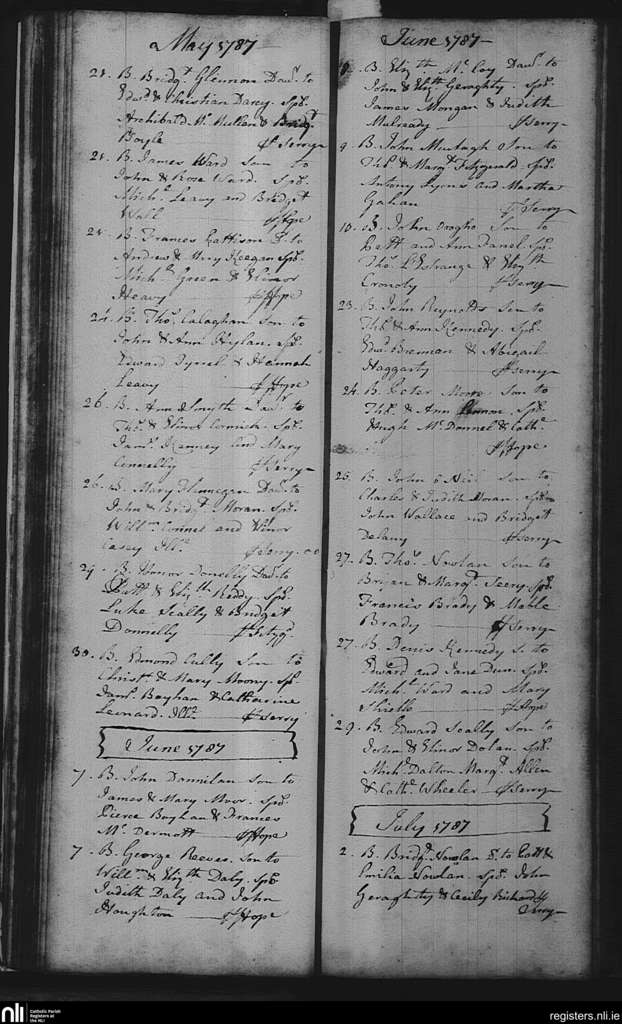 May 1787
21. B. Bridgt. Glennon Daur. to
Edwd. & Christian Darcy. Sps.
Archibald Mc. Mullen & Bridgt.
Boyle Fr. Terry
21. B. James Ward Son to
John & Rose Ward. Sps.
Michl. Leavy and Bridget
Wall Fr. Hope
Andrew & Mary Keegan Sps.
Michl. Green & Elinor
Heavy Fr. Hope
24. B. Thos. Calaghan Son to
John & Ann Hylan. Sps.
Edward Tyrrel & Hannah
Leavy Fr. Hope
26. B. Ann Smyth Daur. to
Thos. & Elinor Cormick. Sps.
Jams. Kenney and Mary
Connelly Fr. Terry
26. B. Mary Finnegan Daur. to
John & Bridgt. Moran. Sps.
Willm. Connel and Elinor
Casey Illt. Fr. Terry
29. B. Honor Donelly Daur. to
Patt & Elizth. Reddy. Sps.
Luke Scally & Bridget
Donnelly
30. B. Edmond Cully Son to
Christr. & Mary Moony. Sps.
Jams. Boyhan & Catharine
Leonard. Illt. Fr. Terry
June 1787
7. B. John Donnilan Son to
James & Mary Moor. Sps.
Pierce Boylan & Frances
Mc. Dermott Fr. Hope
7. B. George Reeves. Son to
Willm. & Elizth. Daly. Sps.
Judith Daly and John
Houghton Fr. Hope
June 1787
B. Elizth. Mc. Coy Daur. to
John & Elizth. Geraghty. Sps.
James Mongan & Judith
Mulready Fr. Terry
9. B. John Murtagh Son to
Ths. & Margt. Fitzgerald. Sps.
Antony Lyons and Martha
Gahan Fr. Terry
10. B. John Son to
Patt and Ann Sps.
Thos. L'Estrange & Elizth.
Fr. Terry
23. B. John Reynolds Son to
Ths. & Ann Kennedy. Sps.
Edwd. Brennan & Abigail
Haggarty Fr. Terry
24. B. Peter Moore Son to
Ths. & Ann Sps.
Hugh Mc. Donnel & Cath.
Fr. Hope
25. B. John o Neil Son to
Charles & Judith Horan. Sps.
John Wallace and Bridget
Delany Fr. Terry
27. B. Thos. Nowlan Son to
Brian & Margt. Sps.
Francis Brady & Mable
Brady Fr. Terry
27. B. Denis Kennedy S. to
Edward and Jane Dun. Sps.
Michl. Ward and Mary
Shiells Fr. Hope
29. B. Edward Scally Son to
John & Elinor Dolan. Sps.
Michl. Dalton Margt. Allen
& Cathe. Wheeler Fr. Terry
July 1787
2. B. Bridgt. Nowlan D. to Patt &
Emilia Nowlan. Sps. John
Geraghty & Cecily Richard Fr.
Terry
nli Catholic Parish
Registers at
the NLI
registers.nli.ie